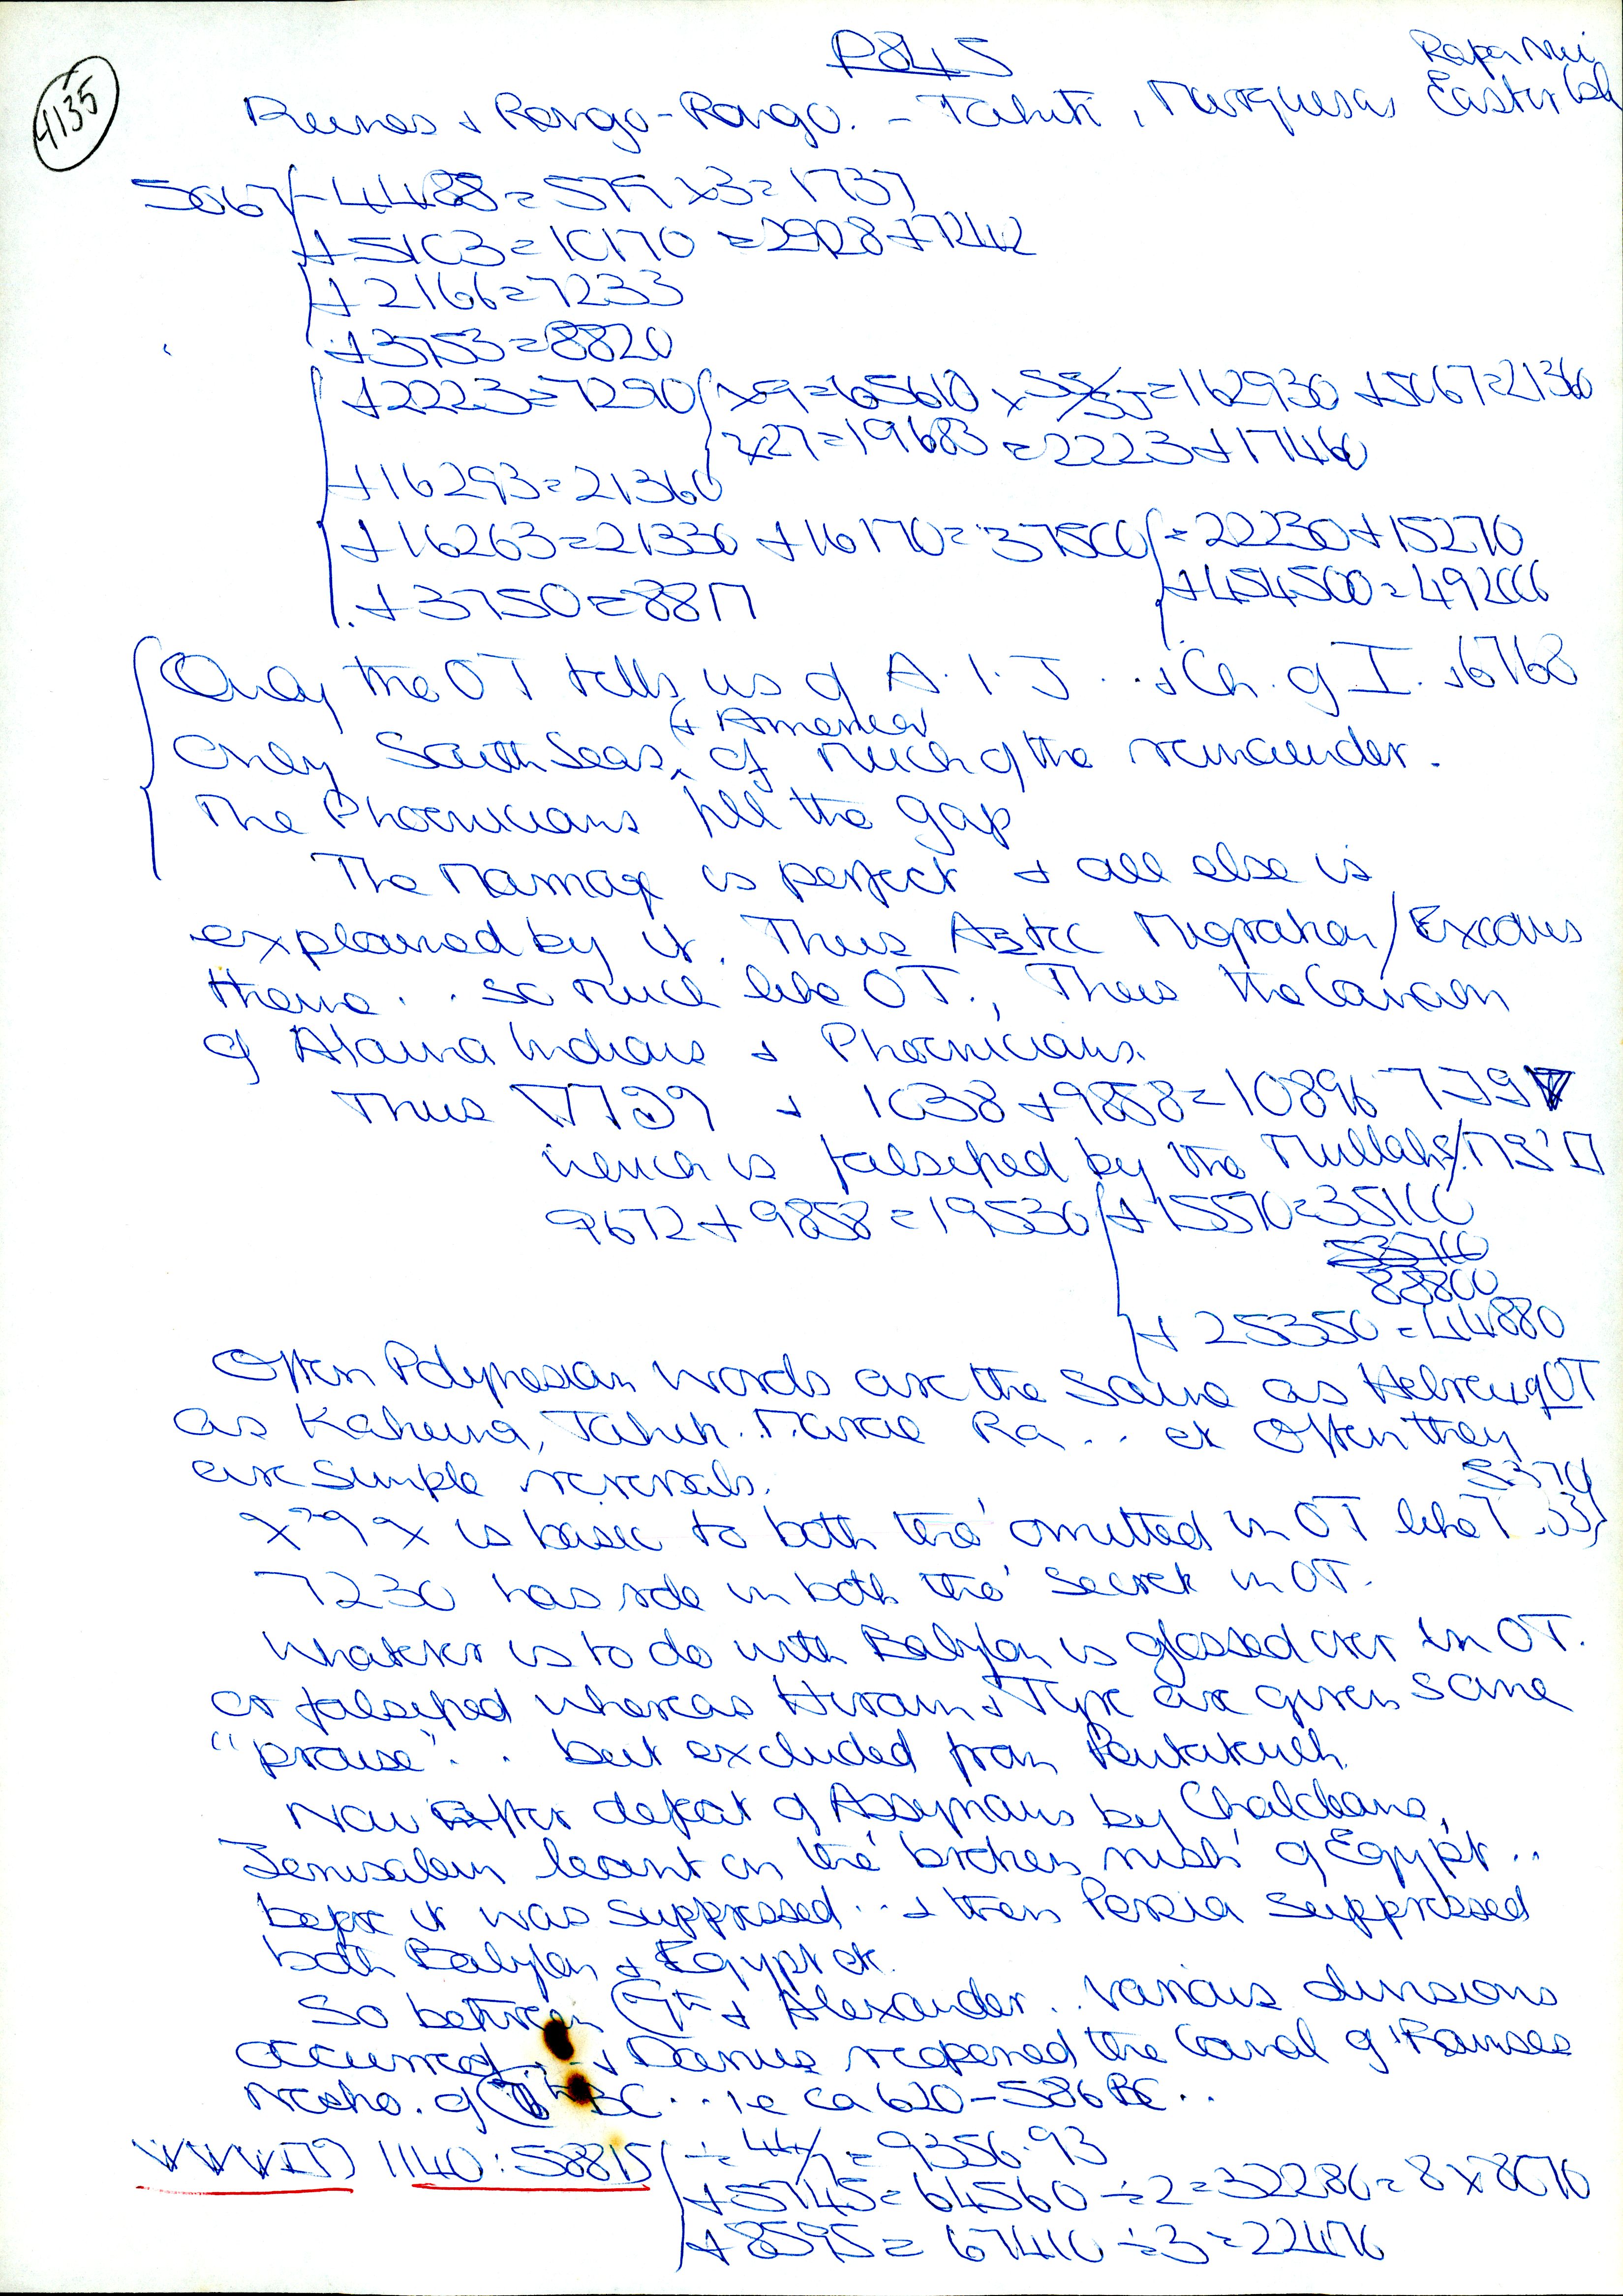 4135
P845
Rapa Nui
Runes + Rongo-Rongo. - Tahiti, Marquesas Easter Isl
5067 - 4488 = 579 x3 = 1737
+ 5103 = 10170 = 2928 + 7242
+ 2166 = 7233
+ 3753 = 8820
+ 2223 = 7290 x9 = 65610 x = 162930 + 5067 = 21360
x27 = 19683 = 2223 + 17460
+ 16293 = 21360
+ 16263 = 21330 + 16170 = 37500 = 22230 + 15270
+ 454500 = 492000
+ 3750 = 8817
Only the OT tells us of A. I. J .. + Ch. of I. + 6768
(+ America)
Only South Seas, of much of the remainder.
The Phoenicians fill the gap
The Marriage is perfect + all else is
explained by it. Thus Aztec Migration/Exodus
theme .. so much like OT., Thus the Canaan
of Indians + Phoenicians.
Thus + 1038 + 9858 = 10896
which is falsified by the Mullahs/
9672 + 9858 = 19530 + 15570 = 35100
53700
88800
+ 25350 = 44880
Often Polynesian words are the same as Hebrew of OT
as Kahuna, Tahiti. Marae Ra .. etc Often they
are simple reversals.
5370
is basic to both tho' omitted in OT like
7230 has role in both tho' secret in OT.
Whatever is to do with Babylon is glossed over in OT.
or falsified whereas Hiram + Tyre are given some
"praise" .. but excluded from Pentateuch.
Now After defeat of Assyrians by Chaldeans,
Jerusalem leant on the 'broken rush' of Egypt ..
before it was suppressed .. + then Persia suppressed
both Babylon + Egypt etc.
So between C7th + Alexander .. various divisions
occurred .. + Darius reopened the Canal of Ramses
Necho. of BC .. i.e ca 620-586 BC ..
1140 : 58815 ÷ 44/7 = 9356.93
+ 5745 = 64560 ÷ 2 = 32280 = 8 x 8070
+ 8595 = 67410 ÷ 3 = 22470